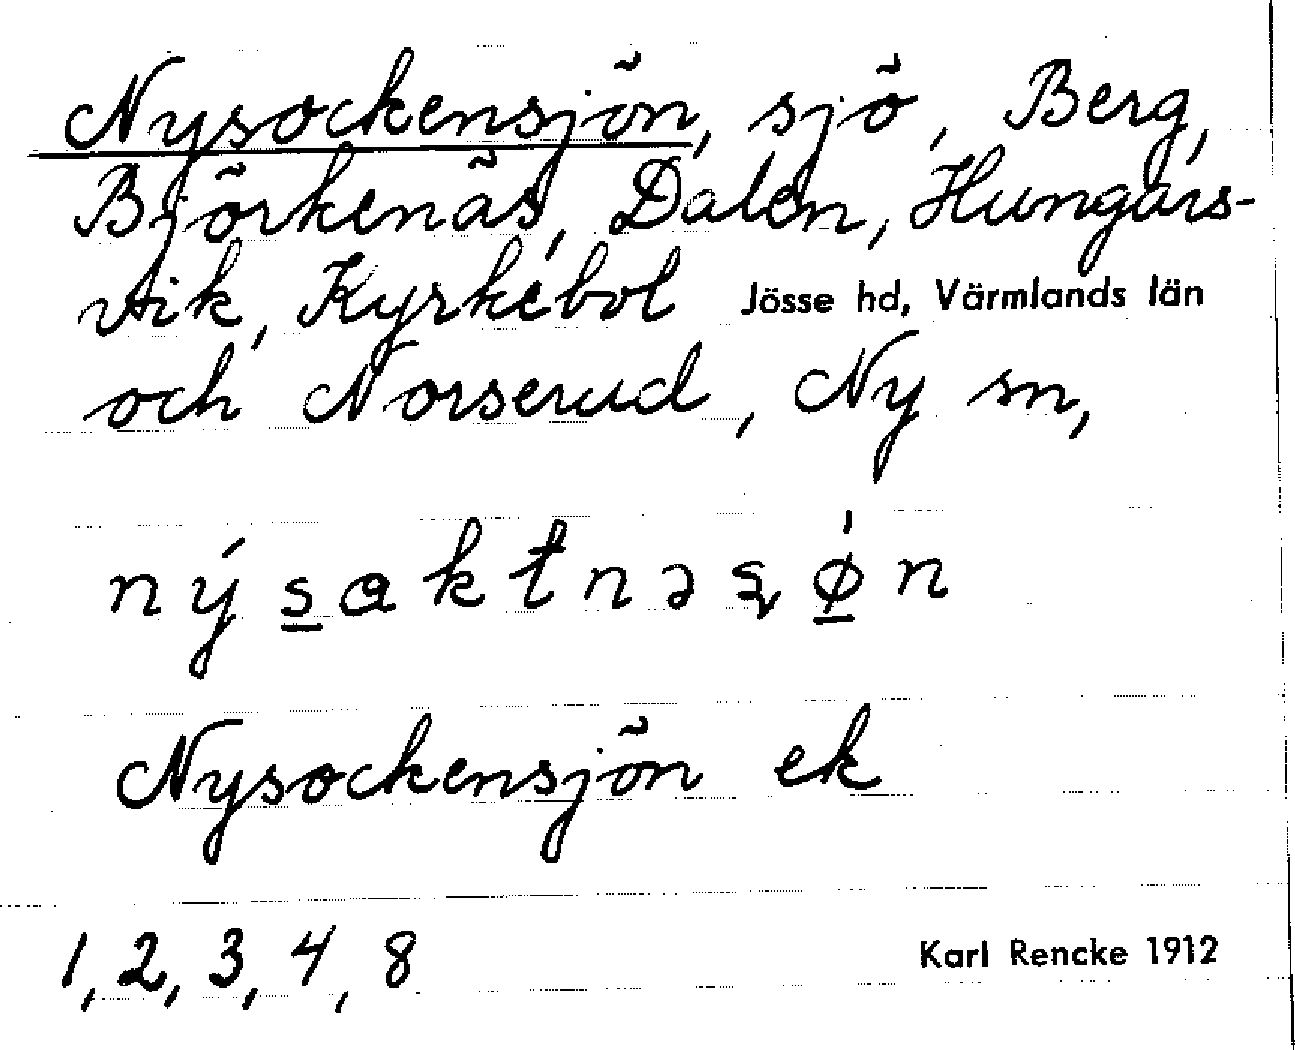 Nysockensjön, sjö, Berg,
Björkenäs, Dalen, Hungars-
vik, Kyrkebol Jösse hd, Värmlands län
och Norserud, Ny sn,
ný s̲ɑktnəȿø̲̍n
Nysockensjön ek
1, 2, 3, 4, 8 Karl Rencke 1912